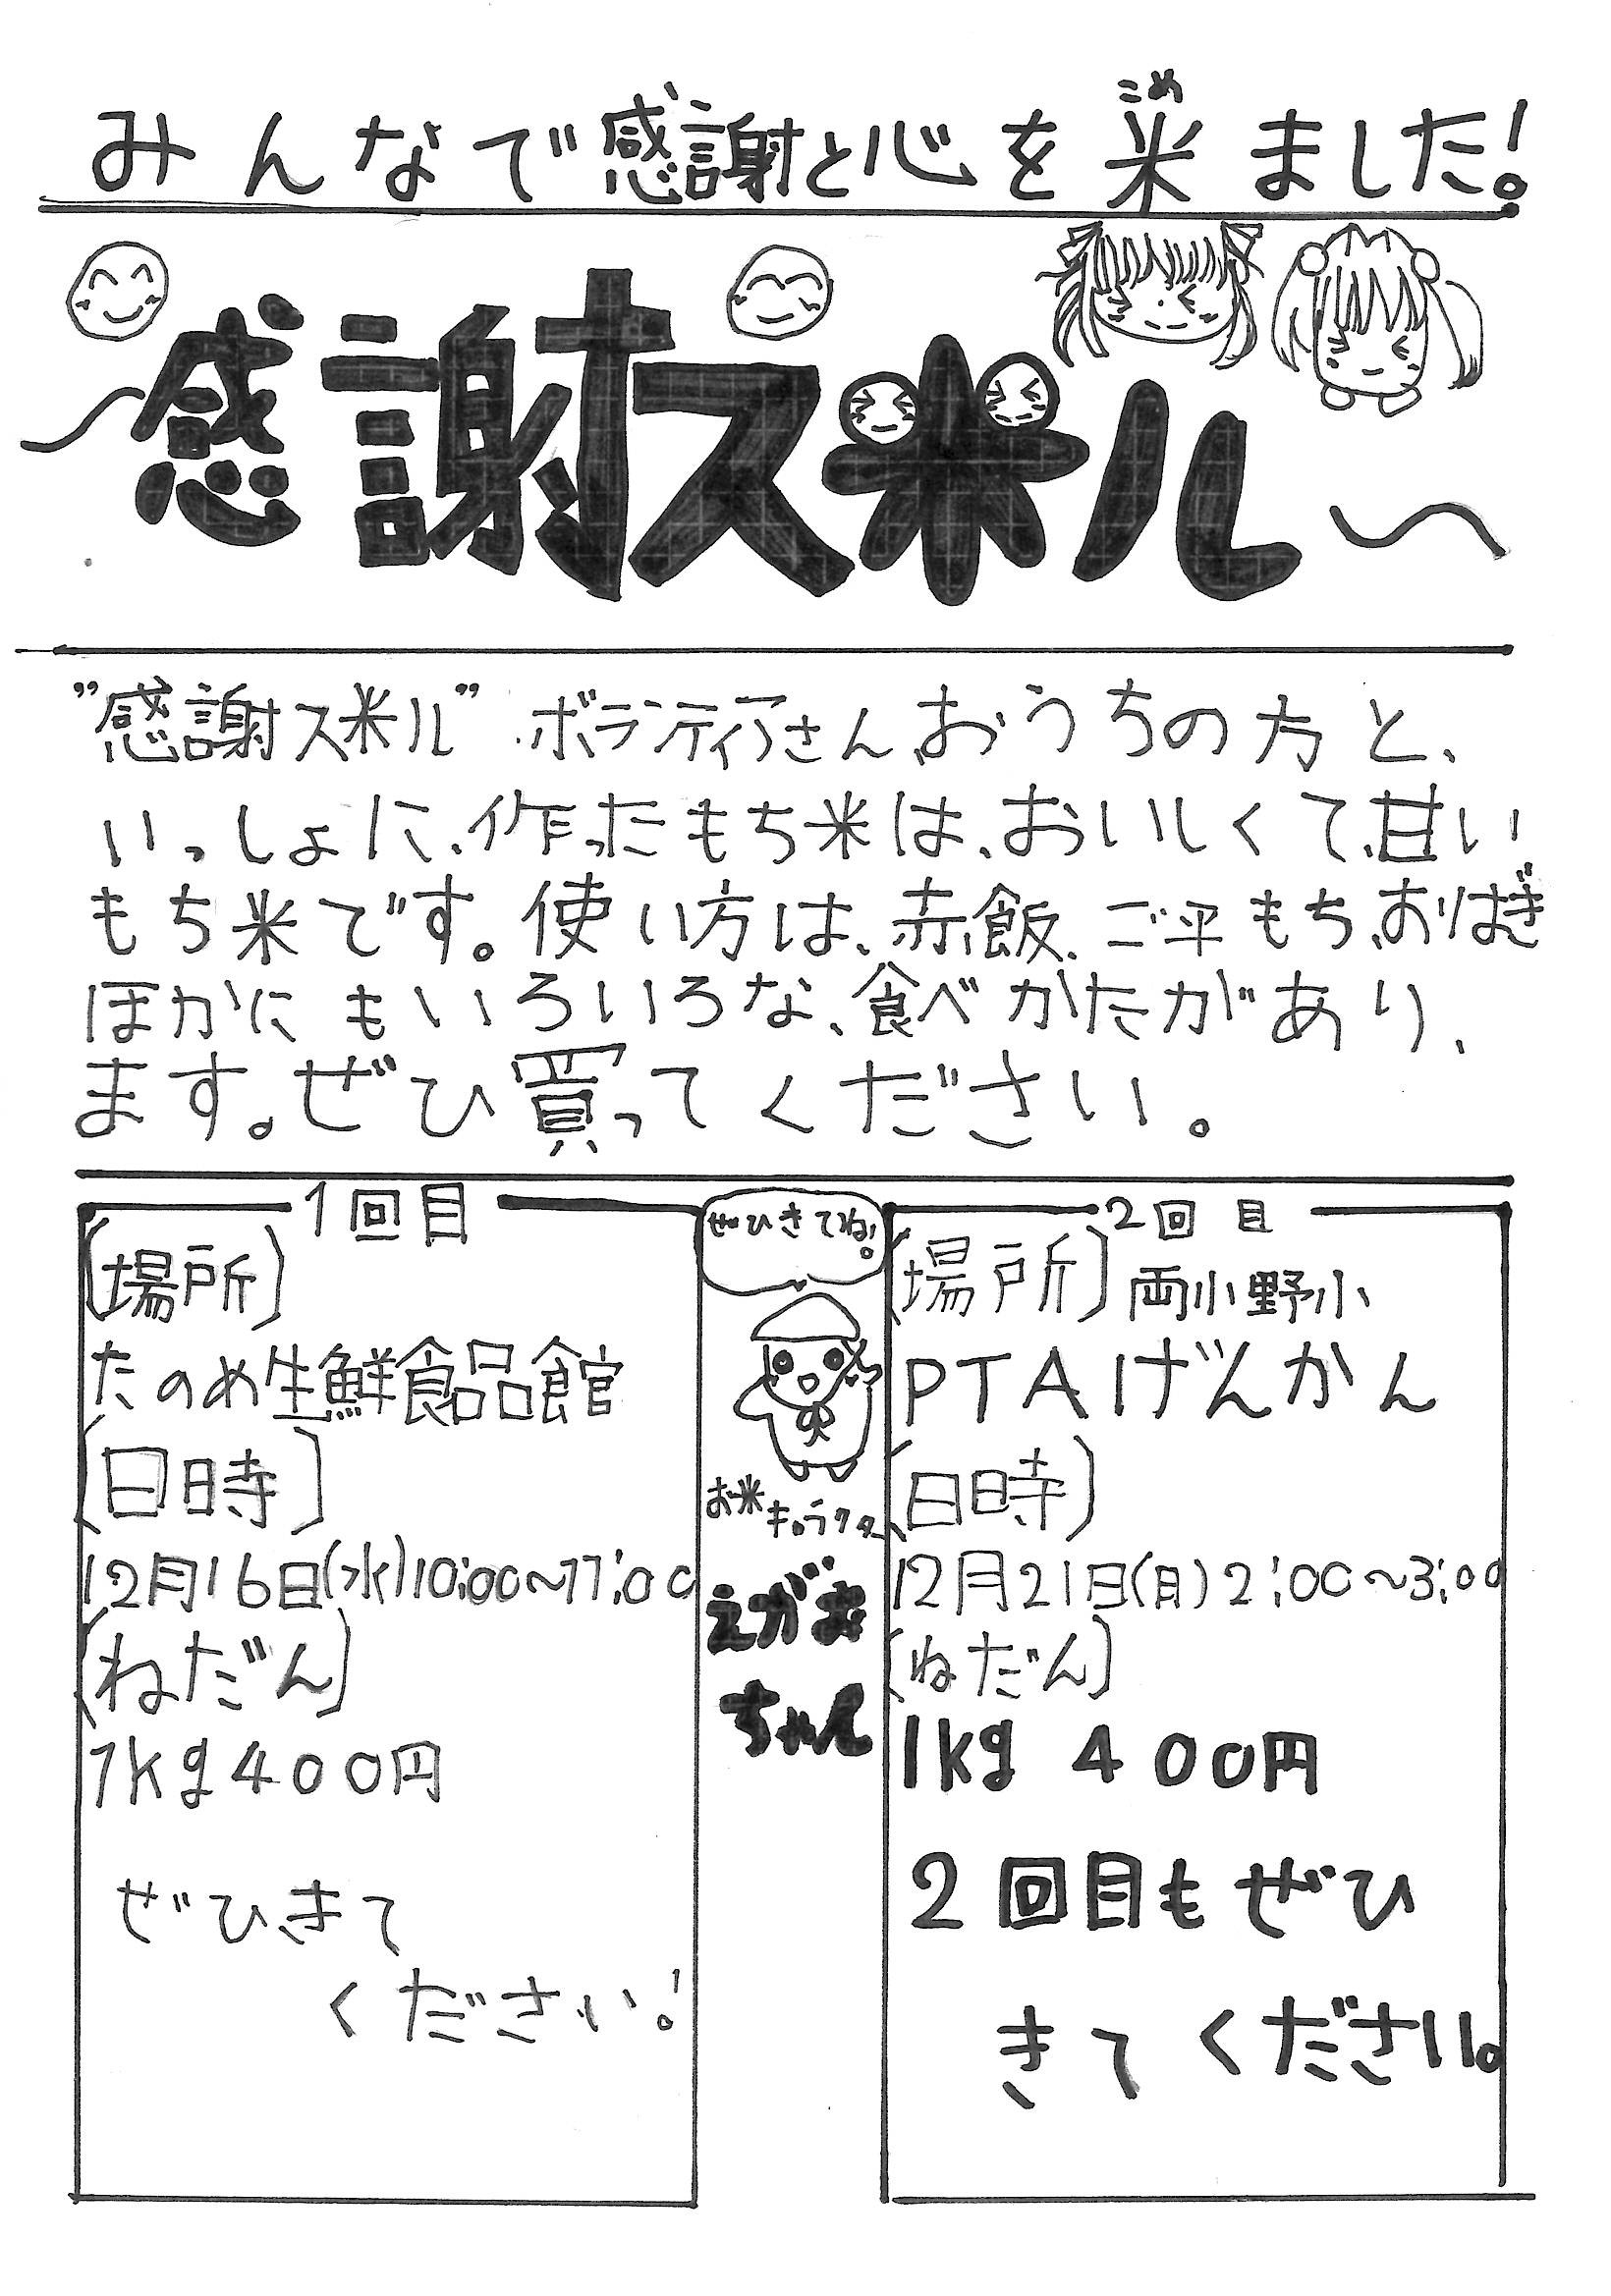 こめ
みんなで感謝と心を米ました!
〜感謝ス米ル〜
"感謝ス米ル"ボランティアさんおうちの方と、
いっしょに、作ったもち米は、おいしくて、甘い
もち米です。使い方は、赤飯、ご平もち、おはぎ
ほかにもいろいろな、食べかたがあり、
ます。ぜひ買ってください。
1回目
[場所]
たのめ生鮮食品館
[日時]
12月16日(水)10:00〜11:00
[ねだん]
1kg400円
ぜひきて
ください!
ぜひきてね!
お米キャラクター
えがお
ちゃん
2回目
[場所]両小野小
PTAげんかん
[日時]
12月21日(日)2:00〜3:00
[ねだん]
1kg 400円
2回目もぜひ
きてください。